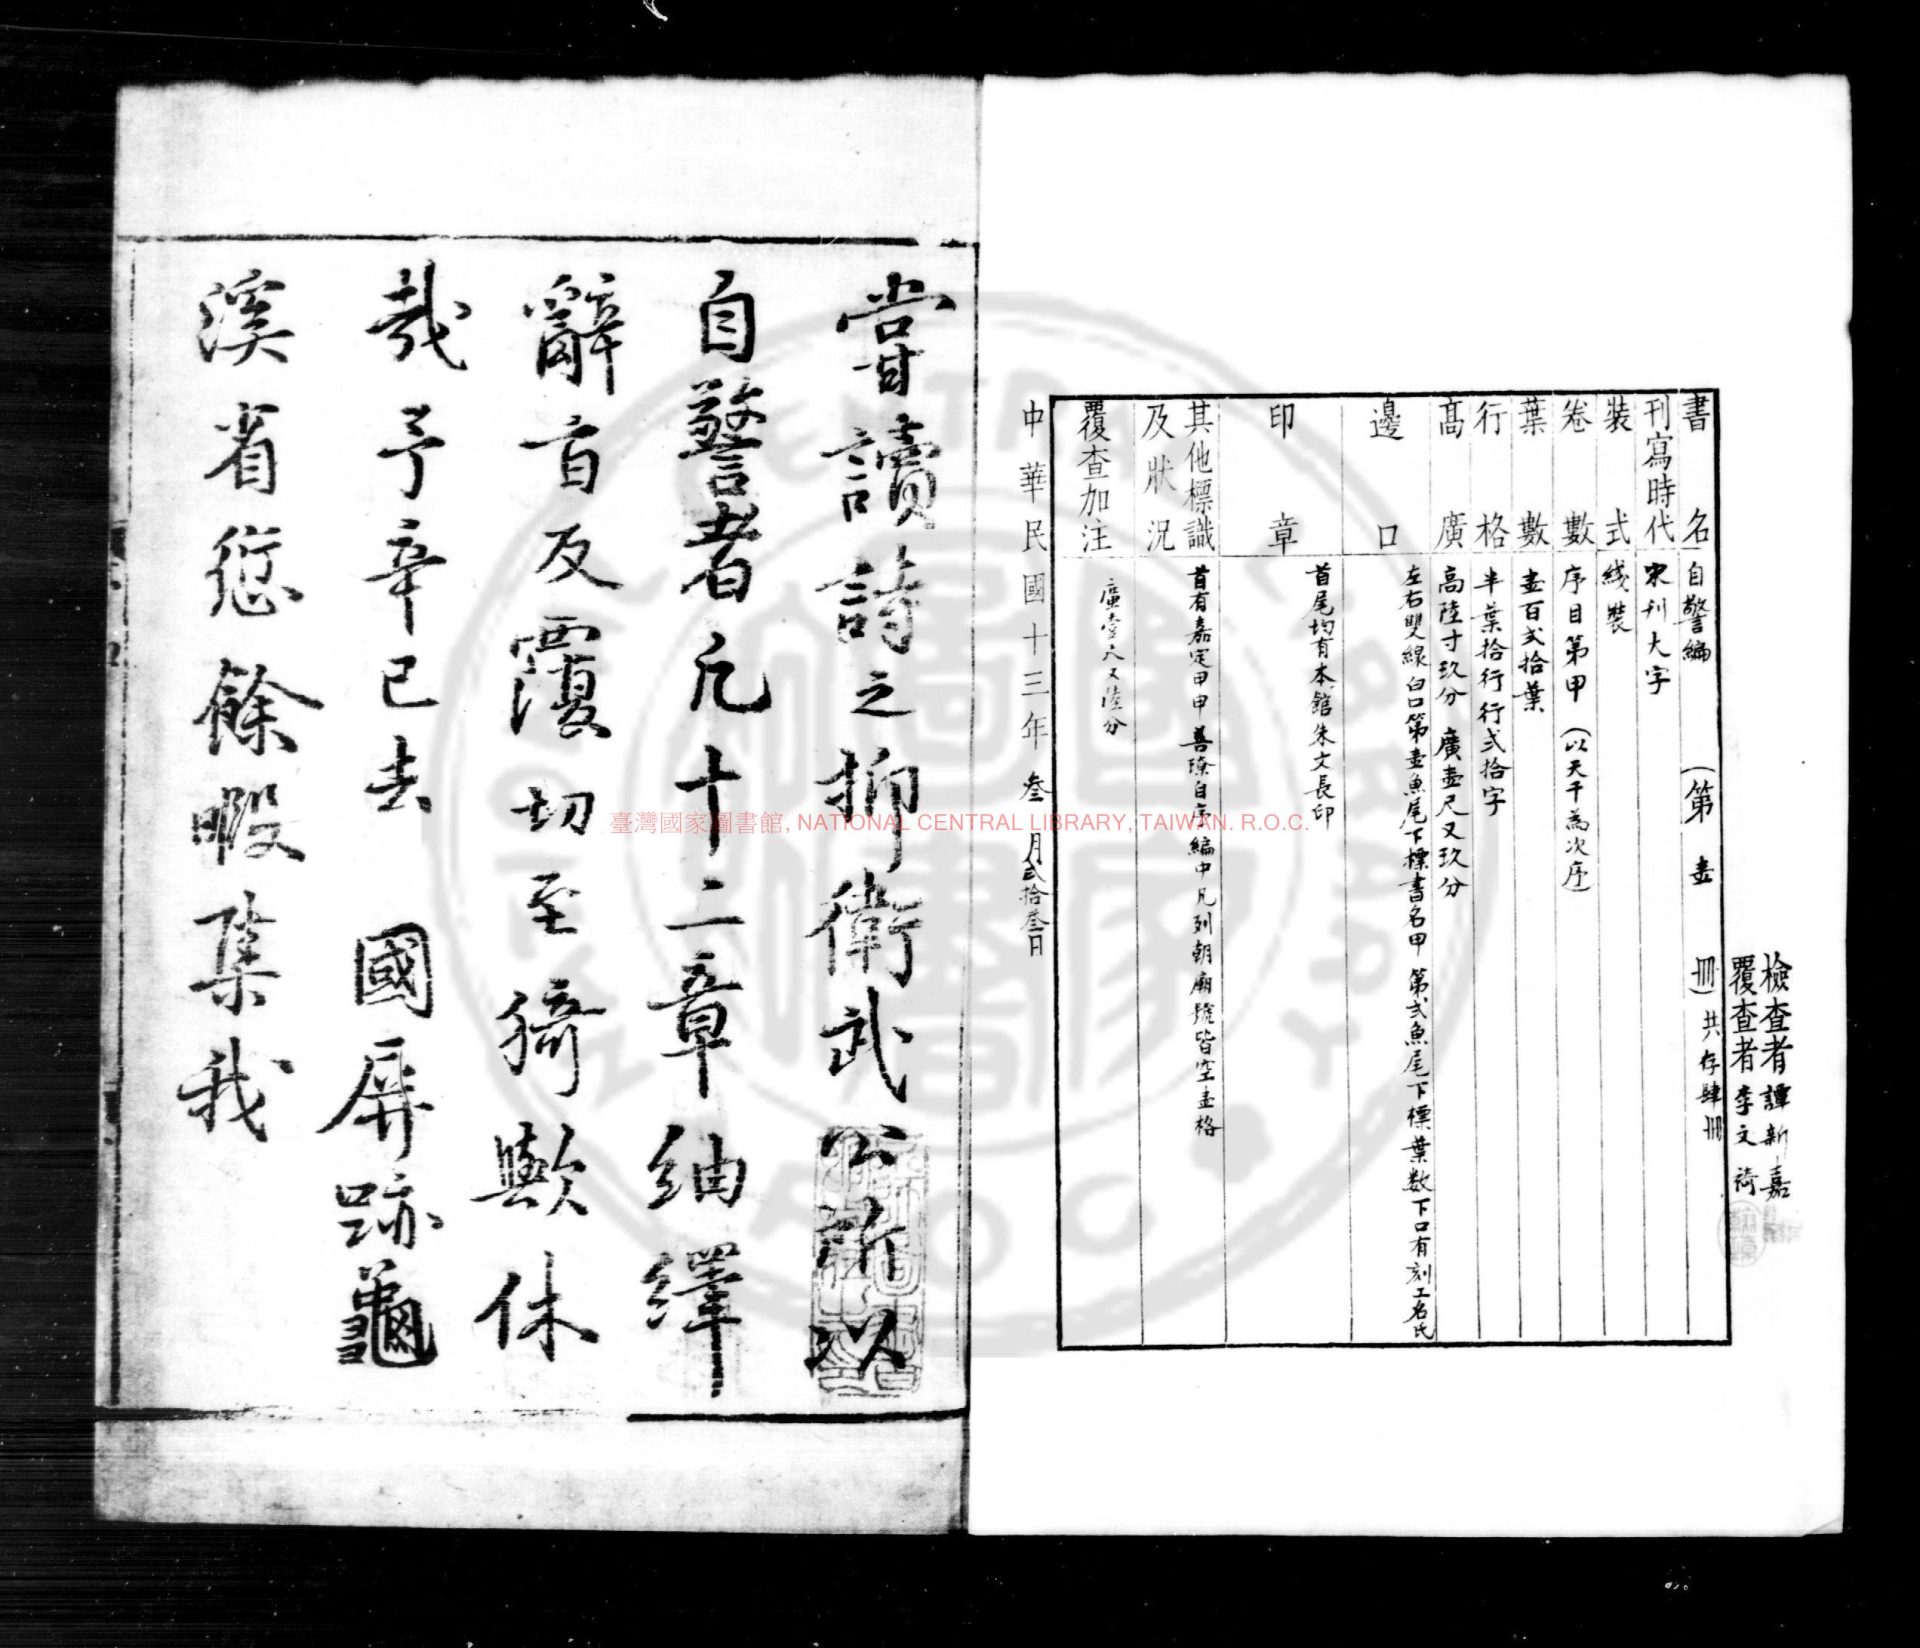 檢查者譚新嘉
覆查者李文裿
書名 自警編 (第壹冊) 共存肆冊
刊寫時代 宋刊大字
裝式 綫裝
卷數 序目第甲 (以天干為次序)
葉數 壹百弍拾葉
行格 半葉拾行行弍拾字
高廣 高陸寸玖分 廣壹尺又玖分
邊口 左右雙線 白口第壹魚尾下標書名甲 第弍魚尾下標葉数下口有刻工名氏
印章 首尾均有本館朱文長印
其他標識及狀況 首有嘉定甲申善璙自序編中凡列朝廟號皆空壹格
覆查加注 廣壹尺又陸分
中華民國十三年叁月弍拾叁日
嘗讀詩之抑衛武公所以
自警者凡十二章紬繹
辭旨反覆切至猗歟休
哉予辛巳去 國屏跡龜
溪省愆餘暇集我
臺灣國家圖書館, NATIONAL CENTRAL LIBRARY, TAIWAN. R.O.C.